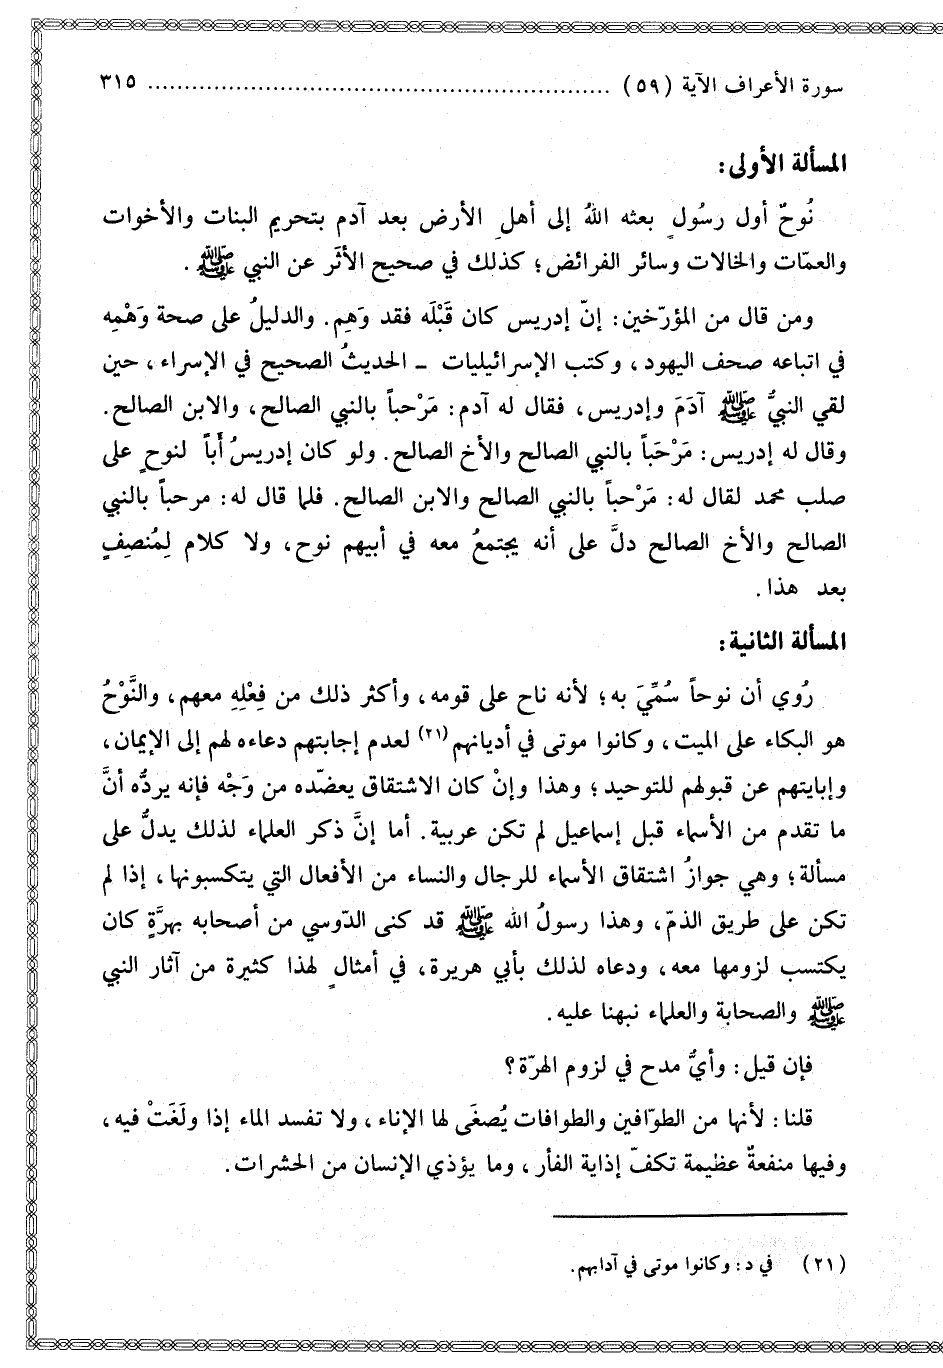 سورة الأعراف الآية (٥٩) ................................................................ ٣١٥
المسألة الأولى:
نُوحٌ أول رسُولٍ بعثه اللهُ إلى أهلِ الأرض بعد آدم بتحريم البنات والأخوات
والعمّات والخالات وسائر الفرائض؛ كذلك في صحيح الأثَر عن النبي ﷺ.
ومن قال من المؤرّخين: إنّ إدريس كان قَبْلَه فقد وَهِم. والدليلُ على صحة وَهْمِه
في اتباعه صحف اليهود، وكتب الإسرائيليات ـ الحديثُ الصحيح في الإسراء، حين
لقي النبيُّ ﷺ آدَمَ وإدريس، فقال له آدم: مَرْحباً بالنبي الصالح، والابن الصالح.
وقال له إدريس: مَرْحَبَاً بالنبي الصالح والأخ الصالح. ولو كان إدريسُ أَباً لنوحٍ على
صلب محمد لقال له: مَرْحباً بالنبي الصالح والابن الصالح. فلما قال له: مرحباً بالنبي
الصالح والأخ الصالح دلَّ على أنه يجتمعُ معه في أبيهم نوح، ولا كلام لِمُنصِفٍ
بعد هذا.
المسألة الثانية:
رُوي أن نوحاً سُمِّيَ به؛ لأنه ناح على قومه، وأكثر ذلك من فِعْلِهِ معهم، والنَّوْحُ
هو البكاء على الميت، وكانوا موتى في أديانهم(٢١) لعدم إجابتهم دعاءه لهم إلى الإيمان،
وإبايتهم عن قبولهم للتوحيد؛ وهذا وإنْ كان الاشتقاق يعضّده من وَجْه فإنه يردّه أنَّ
ما تقدم من الأسماء قبل إسماعيل لم تكن عربية. أما إنَّ ذكر العلماء لذلك يدلُّ على
مسألة؛ وهي جوازُ اشتقاق الأسماء للرجال والنساء من الأفعال التي يتكسبونها، إذا لم
تكن على طريق الذمّ، وهذا رسولُ الله ﷺ قد كنى الدّوسي من أصحابه بهرَّةٍ كان
يكتسب لزومها معه، ودعاه لذلك بأبي هريرة، في أمثالٍ لهذا كثيرة من آثار النبي
ﷺ والصحابة والعلماء نبهنا عليه.
فإن قيل: وأيُّ مدح في لزوم الهرّة؟
قلنا: لأنها من الطوّافين والطوافات يُصغَى لها الإناء، ولا تفسد الماء إذا ولَغَتْ فيه،
وفيها منفعةٌ عظيمة تكفّ إذاية الفأر، وما يؤذي الإنسان من الحشرات.
(٢١) في د: وكانوا موتى في آدابهم.